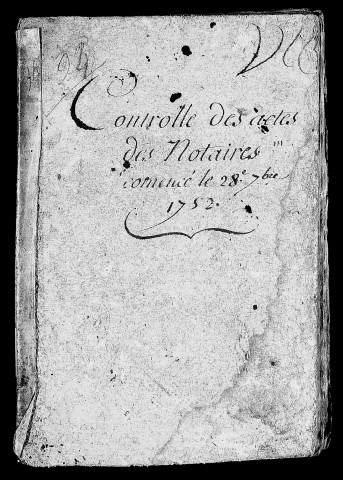 Controlle des actes
des Notaires
comencé le 28.e 7bre
1752.